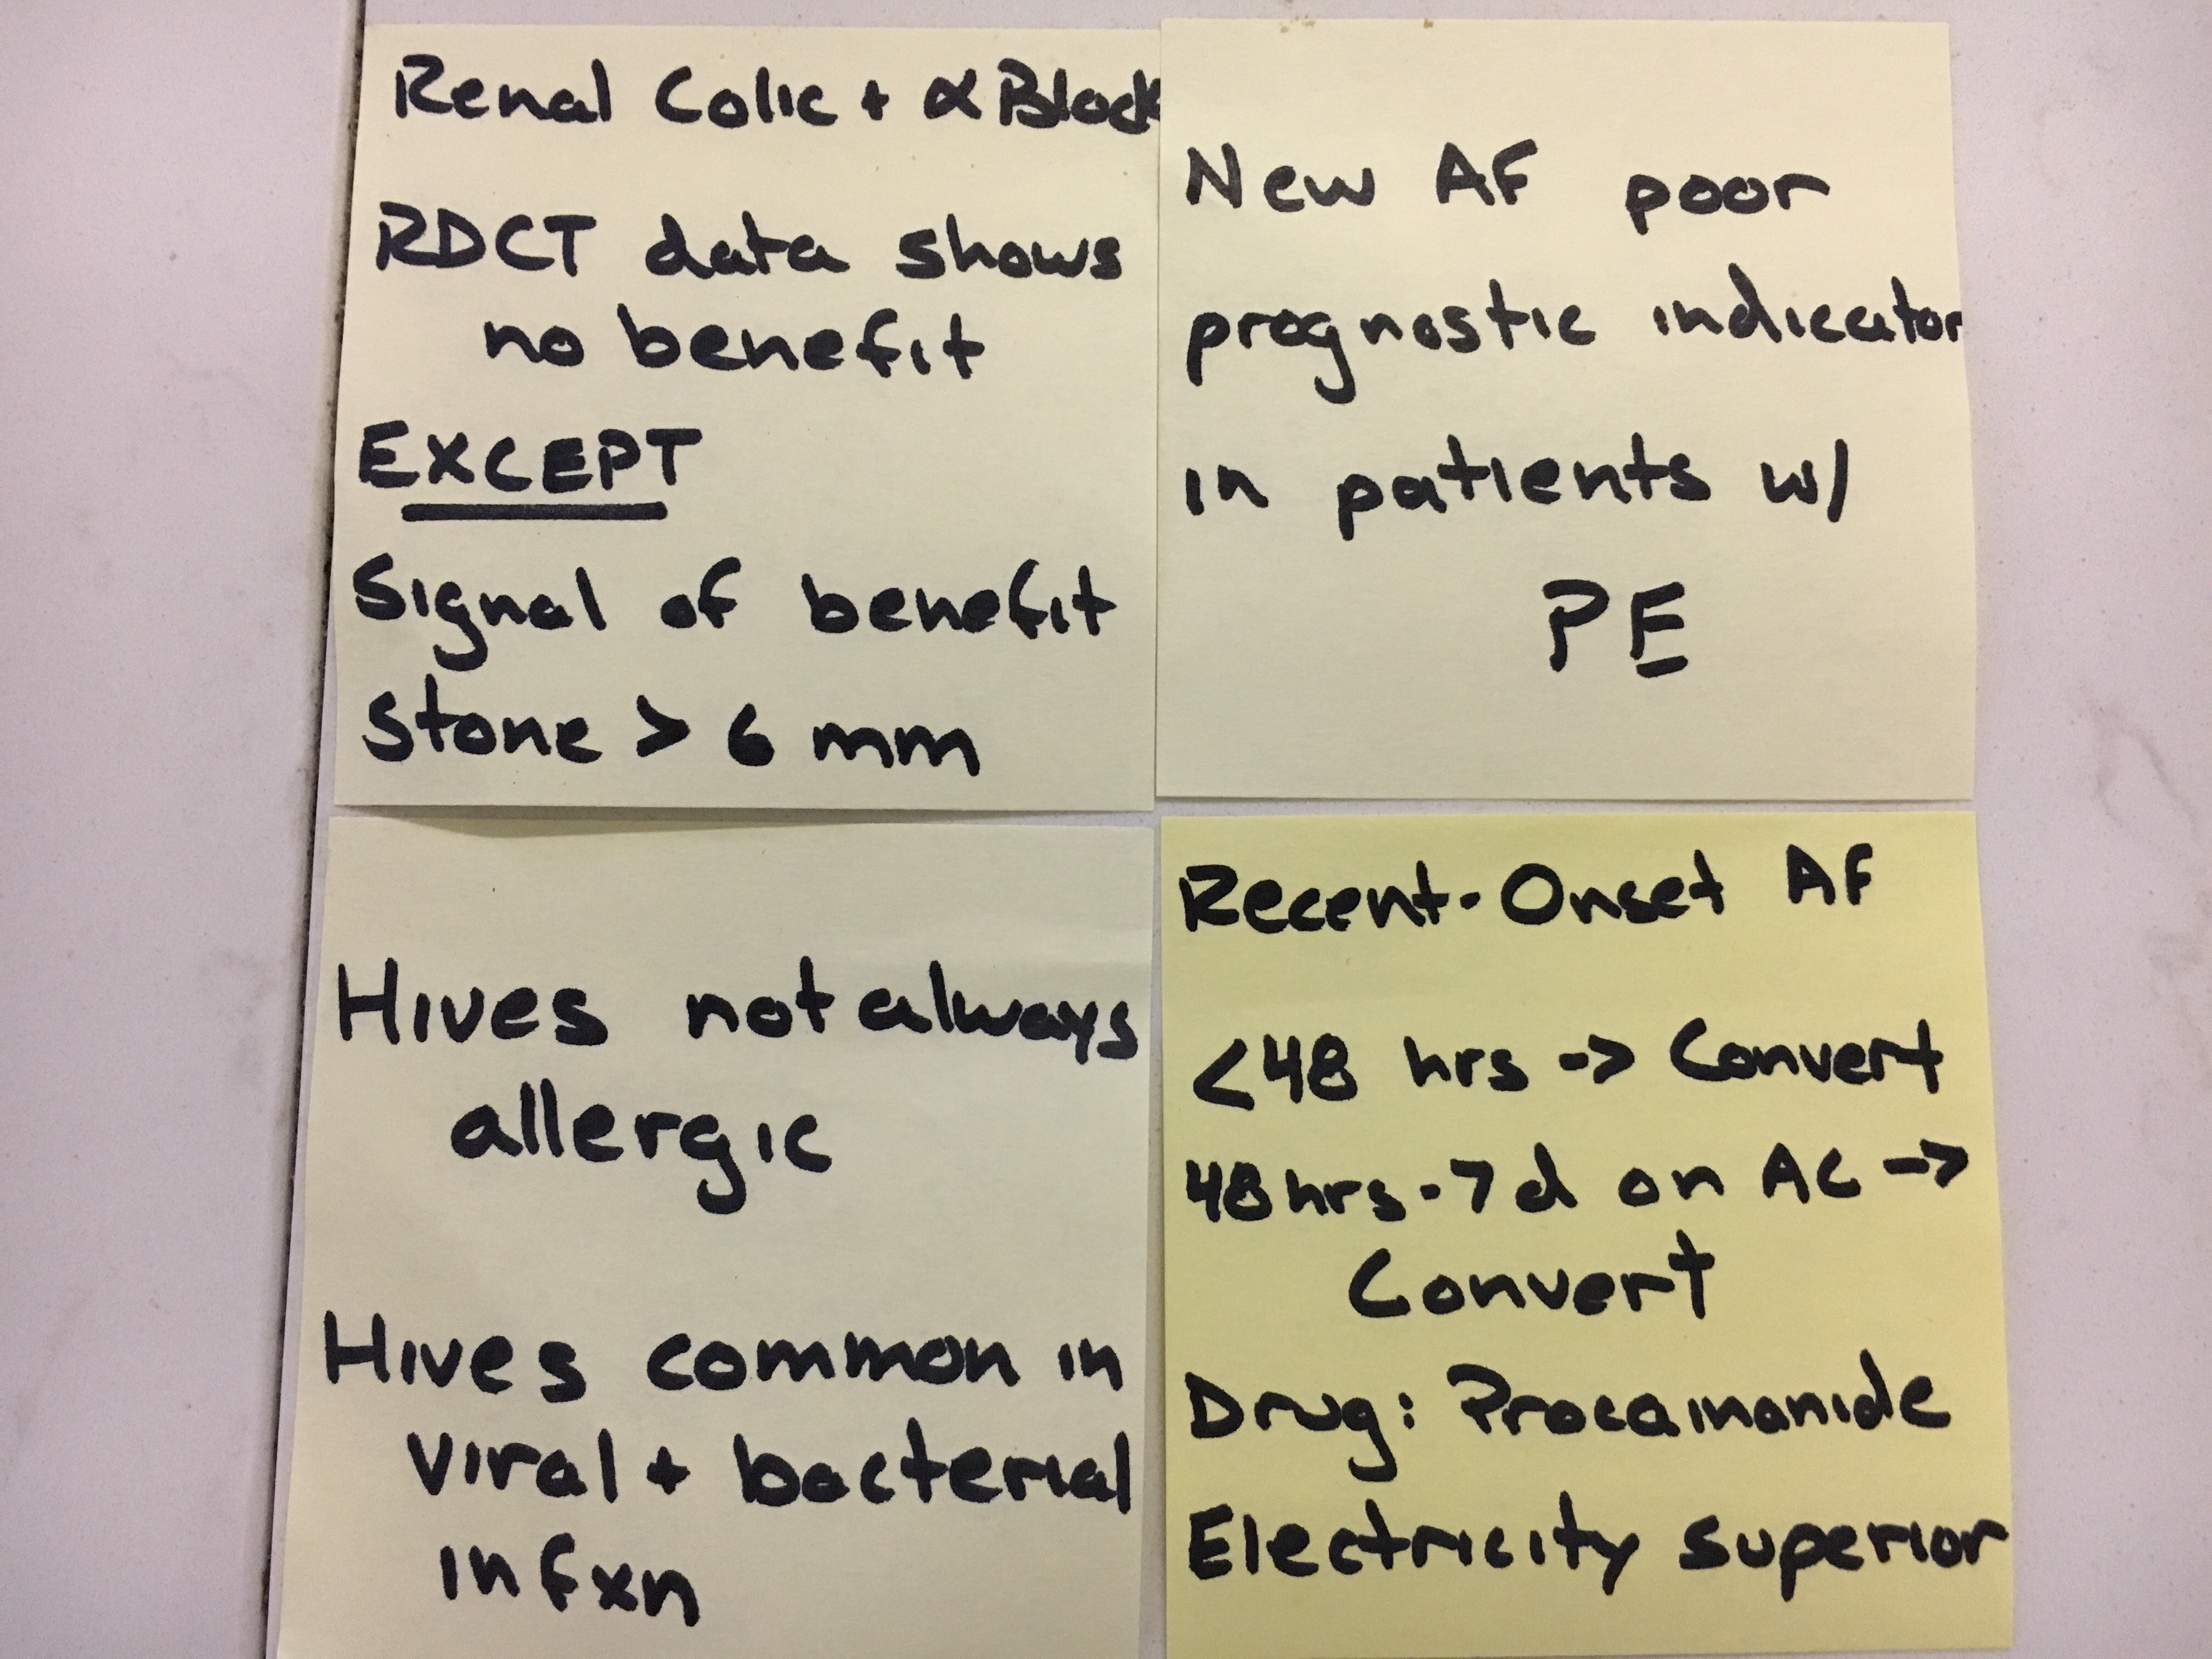 Renal Colic + α Block
RDCT data shows
no benefit
EXCEPT
Signal of benefit
Stone > 6 mm
New AF poor
prognostic indicator
in patients w/
PE
Hives not always
allergic
Hives common in
viral + bacterial
infxn
Recent-Onset AF
<48 hrs -> Convert
48hrs-7d on AC ->
Convert
Drug: Procainamide
Electricity superior